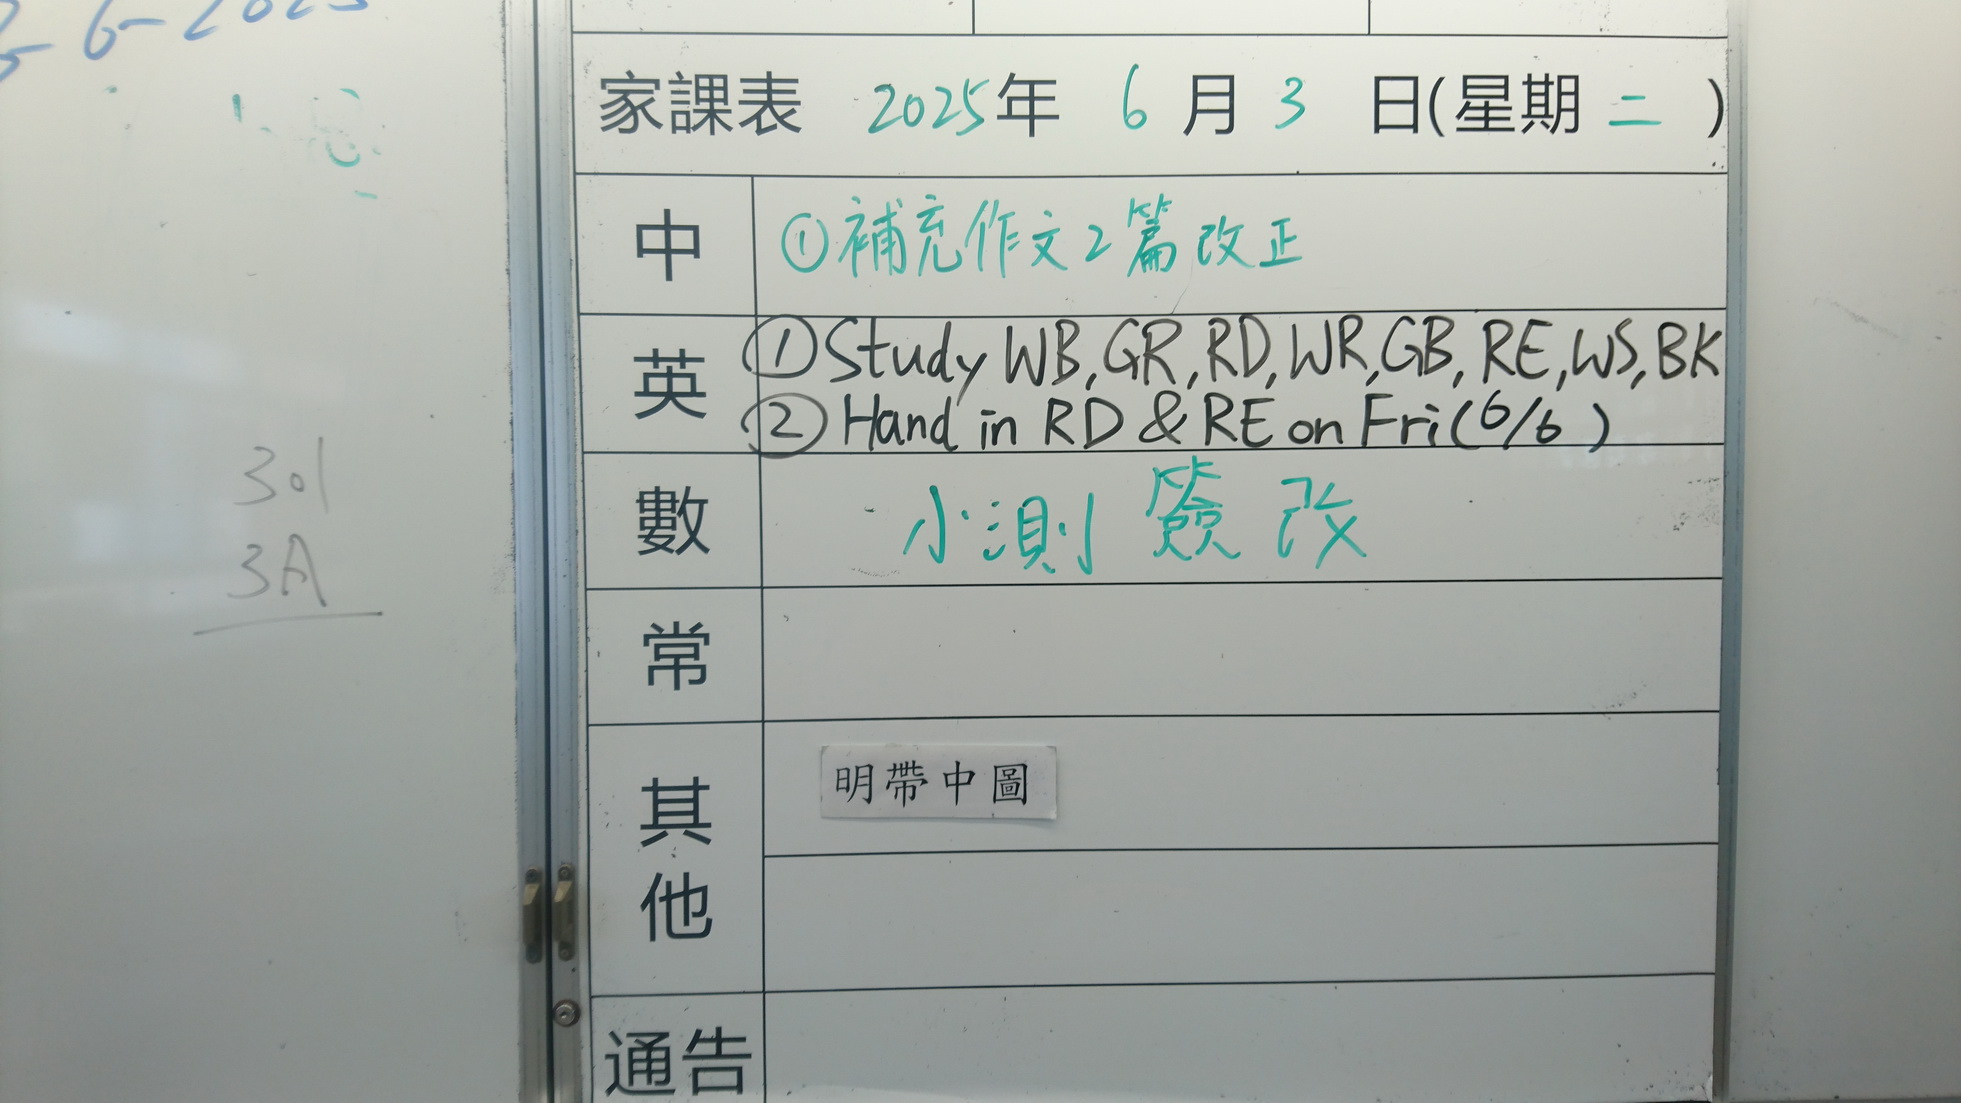 6-2025
家課表 2025年 6月 3 日(星期 二 )
中 ①補充作文2篇改正
英 ①Study WB, GR, RD, WR, GB, RE, WS, BK
②Hand in RD & RE on Fri (6/6)
數 小測 簽 改
常
其他 明帶中圖
通告
301
3A